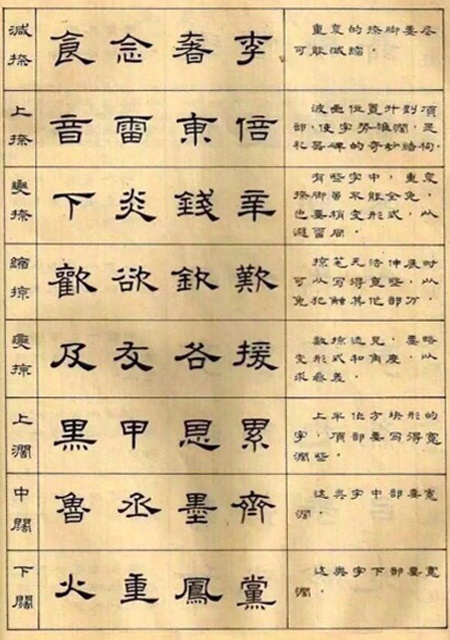 減捺
食 念 奢 李
重复的捺脚要尽
可能减缩。
上捺
音 雷 東 倍
波画位置升到頂
部,使字势雄濶,是
礼器碑的奇妙结构。
變捺
下 炎 錢 辛
有些字中,重复
捺脚虽不能全免,
也要稍变形式,以
避雷同。
縮掠
歡 欲 欽 歎
掠笔无法伸展时
可以写得直些,以
免犯触其他部分。
變掠
及 友 各 援
数掠迭見,要略
变形式和角度,以
求参差。
上濶
黑 甲 思 累
上半作方块形的
字,頂部要写得寬
濶些。
中闊
魯 丞 墨 齊
这类字中部要寬
濶。
下闊
火 重 鳳 黨
这类字下部要寬
濶。